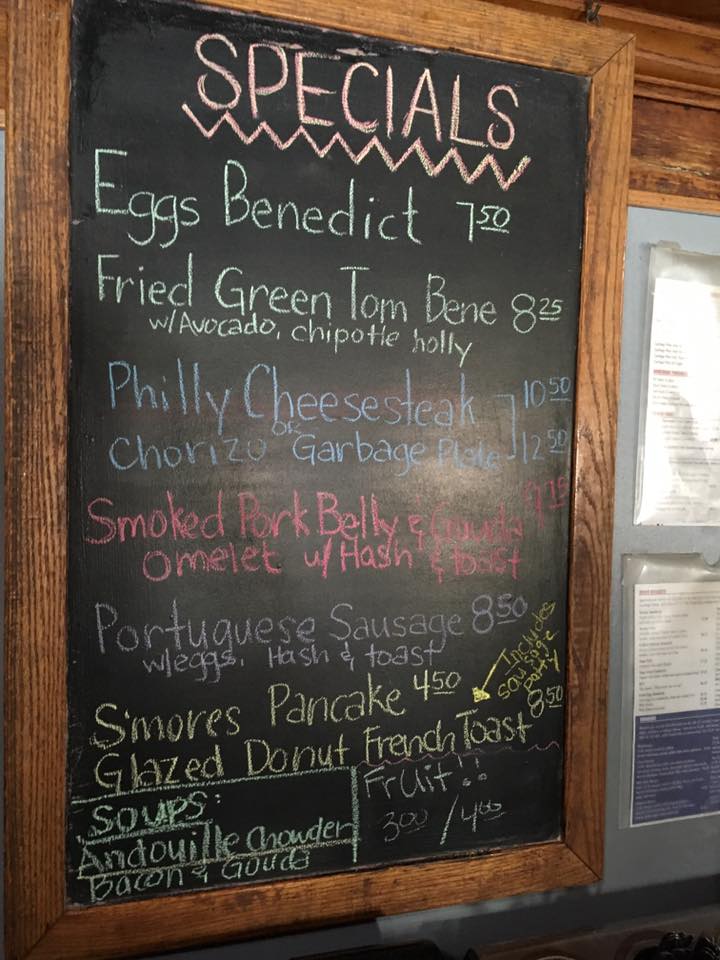 SPECIALS
Eggs Benedict 7 50
Fried Green Tom Bene 8 25
w/Avocado, chipotle holly
Philly Cheesesteak 10 50
or
Chorizo Garbage Plate 12 50
Smoked Pork Belly & Gouda
Omelet w/Hash & toast
Portuguese Sausage 8 50
w/eggs, Hash & toast
Includes
sausage
patty
S'mores Pancake 4 50
Glazed Donut French Toast 8 50
Soups:
Andouille Chowder
Bacon & Gouda
Fruit!!
3 00 / 4 00